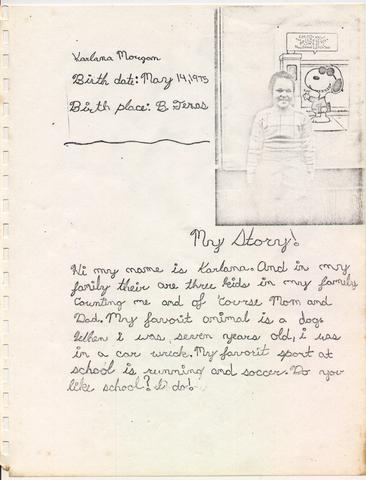 Karlana Morgan
Birth date: May 14, 1975
Birth place: B. Texas
My Story!
Hi my name is Karlana. And in my
family their are three kids in my family
counting me and of course Mom and
Dad. My favorit animal is a dog.
When i was seven years old, i was
in a car wreck. My favorit sport at
school is running and soccer. Do you
like school? I do!